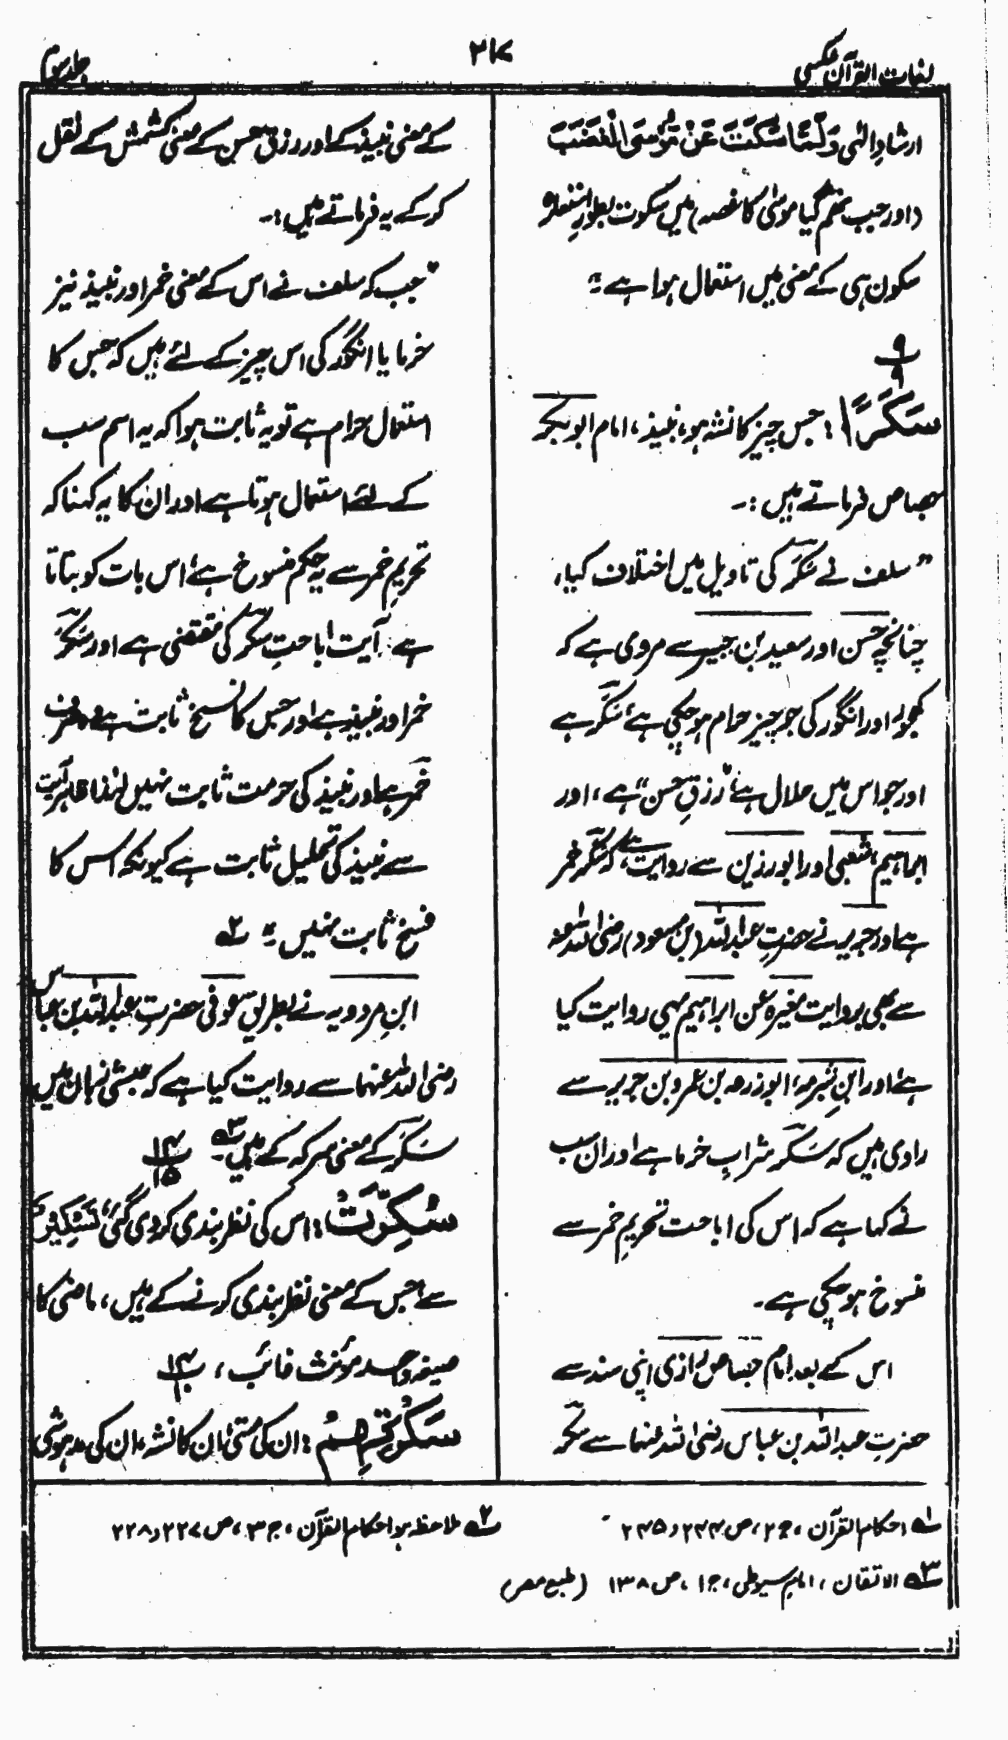 لغات القرآن عکسی
۲۱۷
جلد سوم
ارشادِ الٰہی وَلَمَّا سَكَتَ عَنْ مُّوْسَى الْغَضَبُ
(اور جب تھم گیا موسٰی کا غصہ) میں سکوت بطورِ استعارہ
سکون ہی کے معنی میں استعمال ہوا ہے ؎۱
۹
۹
سَكَرًا: جس چیز کا نشہ ہو، نبیذ، امام ابو بکر
جصاص فرماتے ہیں :۔
"سلف نے سَکَر کی تاویل میں اختلاف کیا،
چنانچہ حسن اور سعید بن جبیر سے مروی ہے کہ
کھجور اور انگور کی جو چیز حرام ہو چکی ہے، سَکَر ہے
اور جو اس میں حلال ہے، "رزقِ حسن" ہے، اور
ابراہیم، شعبی اور ابو رزین سے روایت ہے کہ سَکَر خمر
ہے اور جریر نے حضرتِ عبداللہ (بن مسعود) رضی اللہ عنہ
سے بھی بروایت مغیرہ عن ابراہیم یہی روایت کیا
ہے، اور ابنِ شبرمہ، ابو زرعہ بن عمرو بن جریر سے
راوی ہیں کہ سَکَر شرابِ خرما ہے، اور ان سب
نے کہا ہے کہ اس کی اباحت تحریمِ خمر سے
منسوخ ہو چکی ہے۔
اس کے بعد امام جصاص رازی اپنی سند سے
حضرتِ عبداللہ بن عباس رضی اللہ عنہما سے سَکَر
کے معنی نبیذ کے اور رزقِ حسن کے معنی کشمش کے نقل
کر کے یہ فرماتے ہیں :۔
"جب کہ سلف نے اس کے معنی خمر اور نبیذ نیز
خرما یا انگور کی اس چیز کے لئے ہیں کہ جس کا
استعمال حرام ہے تو یہ ثابت ہوا کہ یہ اسم سب
کے لئے استعمال ہوتا ہے اور ان کا یہ کہنا کہ
تحریمِ خمر سے یہ حکم منسوخ ہے، اس بات کو بتاتا
ہے آیت اباحتِ سَکَر کی مقتضی ہے اور سَکَر
خمر اور نبیذ ہے اور جس کا نسخ ثابت ہے وہ صرف
خمر ہے اور نبیذ کی حرمت ثابت نہیں لہٰذا ظاہر آیت
سے نبیذ کی تحلیل ثابت ہے کیونکہ اس کا
نسخ ثابت نہیں " ؎۲
ابنِ مردویہ نے بطریق عوفی حضرتِ عبداللہ بن عباس
رضی اللہ عنہما سے روایت کیا ہے کہ حبشی زبان میں
سَکَر کے معنی سرکہ کے ہیں ؎۳۔ ۱۴
۱۵
سُكِّرَتْ: اس کی نظر بندی کر دی گئی، تَسْكِيْرٌ
سے جس کے معنی نظر بندی کرنے کے ہیں، ماضی کا
صیغہ واحد مؤنث غائب، ۱۴
سَكْرَتِهِمْ: ان کی مستی، ان کا نشہ، ان کی مدہوشی
؎۱ احکام القرآن، ج۲، ص ۲۴۴ و ۲۴۵
؎۲ ملاحظہ ہو احکام القرآن، ج۳، ص ۲۲۷ و ۲۲۸
؎۳ الاتقان، امام سیوطی، ج۱، ص ۱۳۸ (طبع مصر)